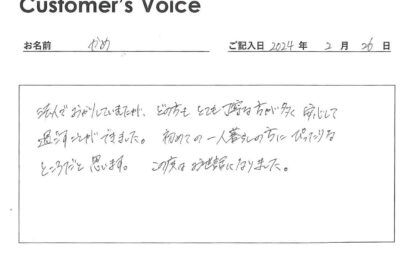 Customer's Voice
お名前 かめ ご記入日 2024 年 2 月 26 日
法人でお借りしていましたが、どの方も とても丁寧な方が多く 安心して
過ごすことができました。 初めての一人暮らしの方に ぴったりな
ところだと思います。 この度は お世話になりました。